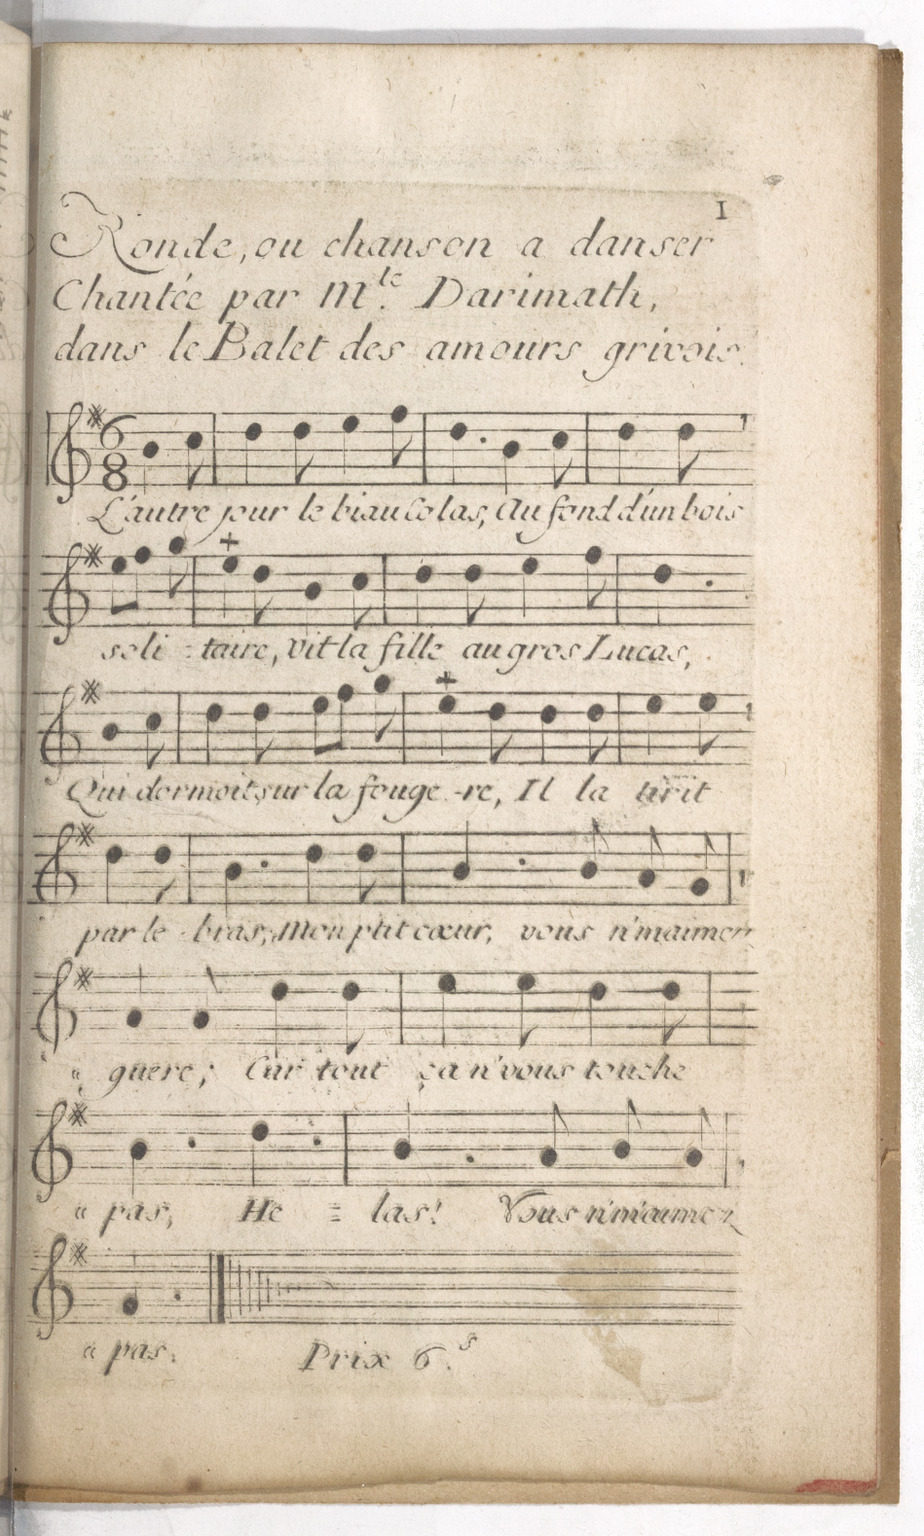 1
Ronde, ou chanson a danser
Chantée par M.lle Darimath,
dans le Balet des amours grivois.
6
8
L'autre jour le biau Colas, Au fond d'un bois
soli = taire, Vit la fille au gros Lucas,
Qui dormoit sur la fouge -re, Il la tirit
par le bras, Mon p'tit cœur, vous n'm'aimez
guere; Car tout ça n'vous touche
pas, He = las! Vous n'm'aimez
pas. Prix 6.s